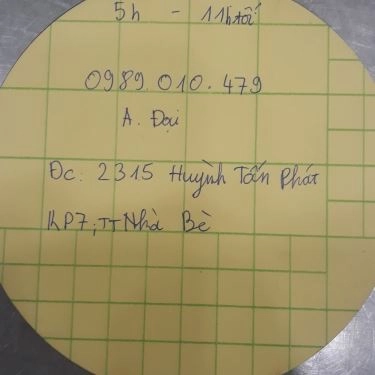 5h - 11h tối
0989.010.479
A. Đại
Đc: 2315 Huỳnh Tấn Phát
KP7, TT Nhà Bè